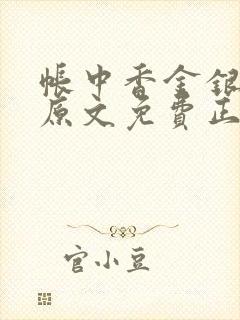 帳中香金銀
原文免費正
官小豆